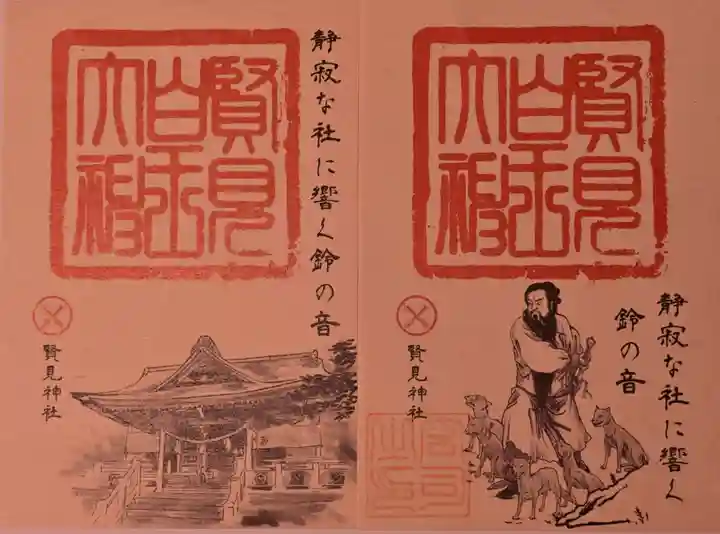 静寂な社に響く鈴の音
賢見
皇
大神
賢見神社
賢見
皇
大神
静寂な社に響く
鈴の音
賢見神社